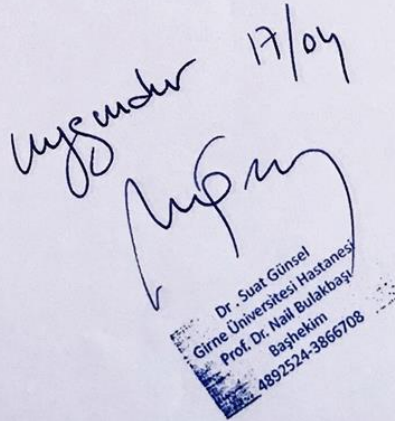 uygundur 17/04
Dr . Suat Günsel
Girne Üniversitesi Hastanesi
Prof. Dr. Nail Bulakbaşı
Başhekim
4892524-3866708